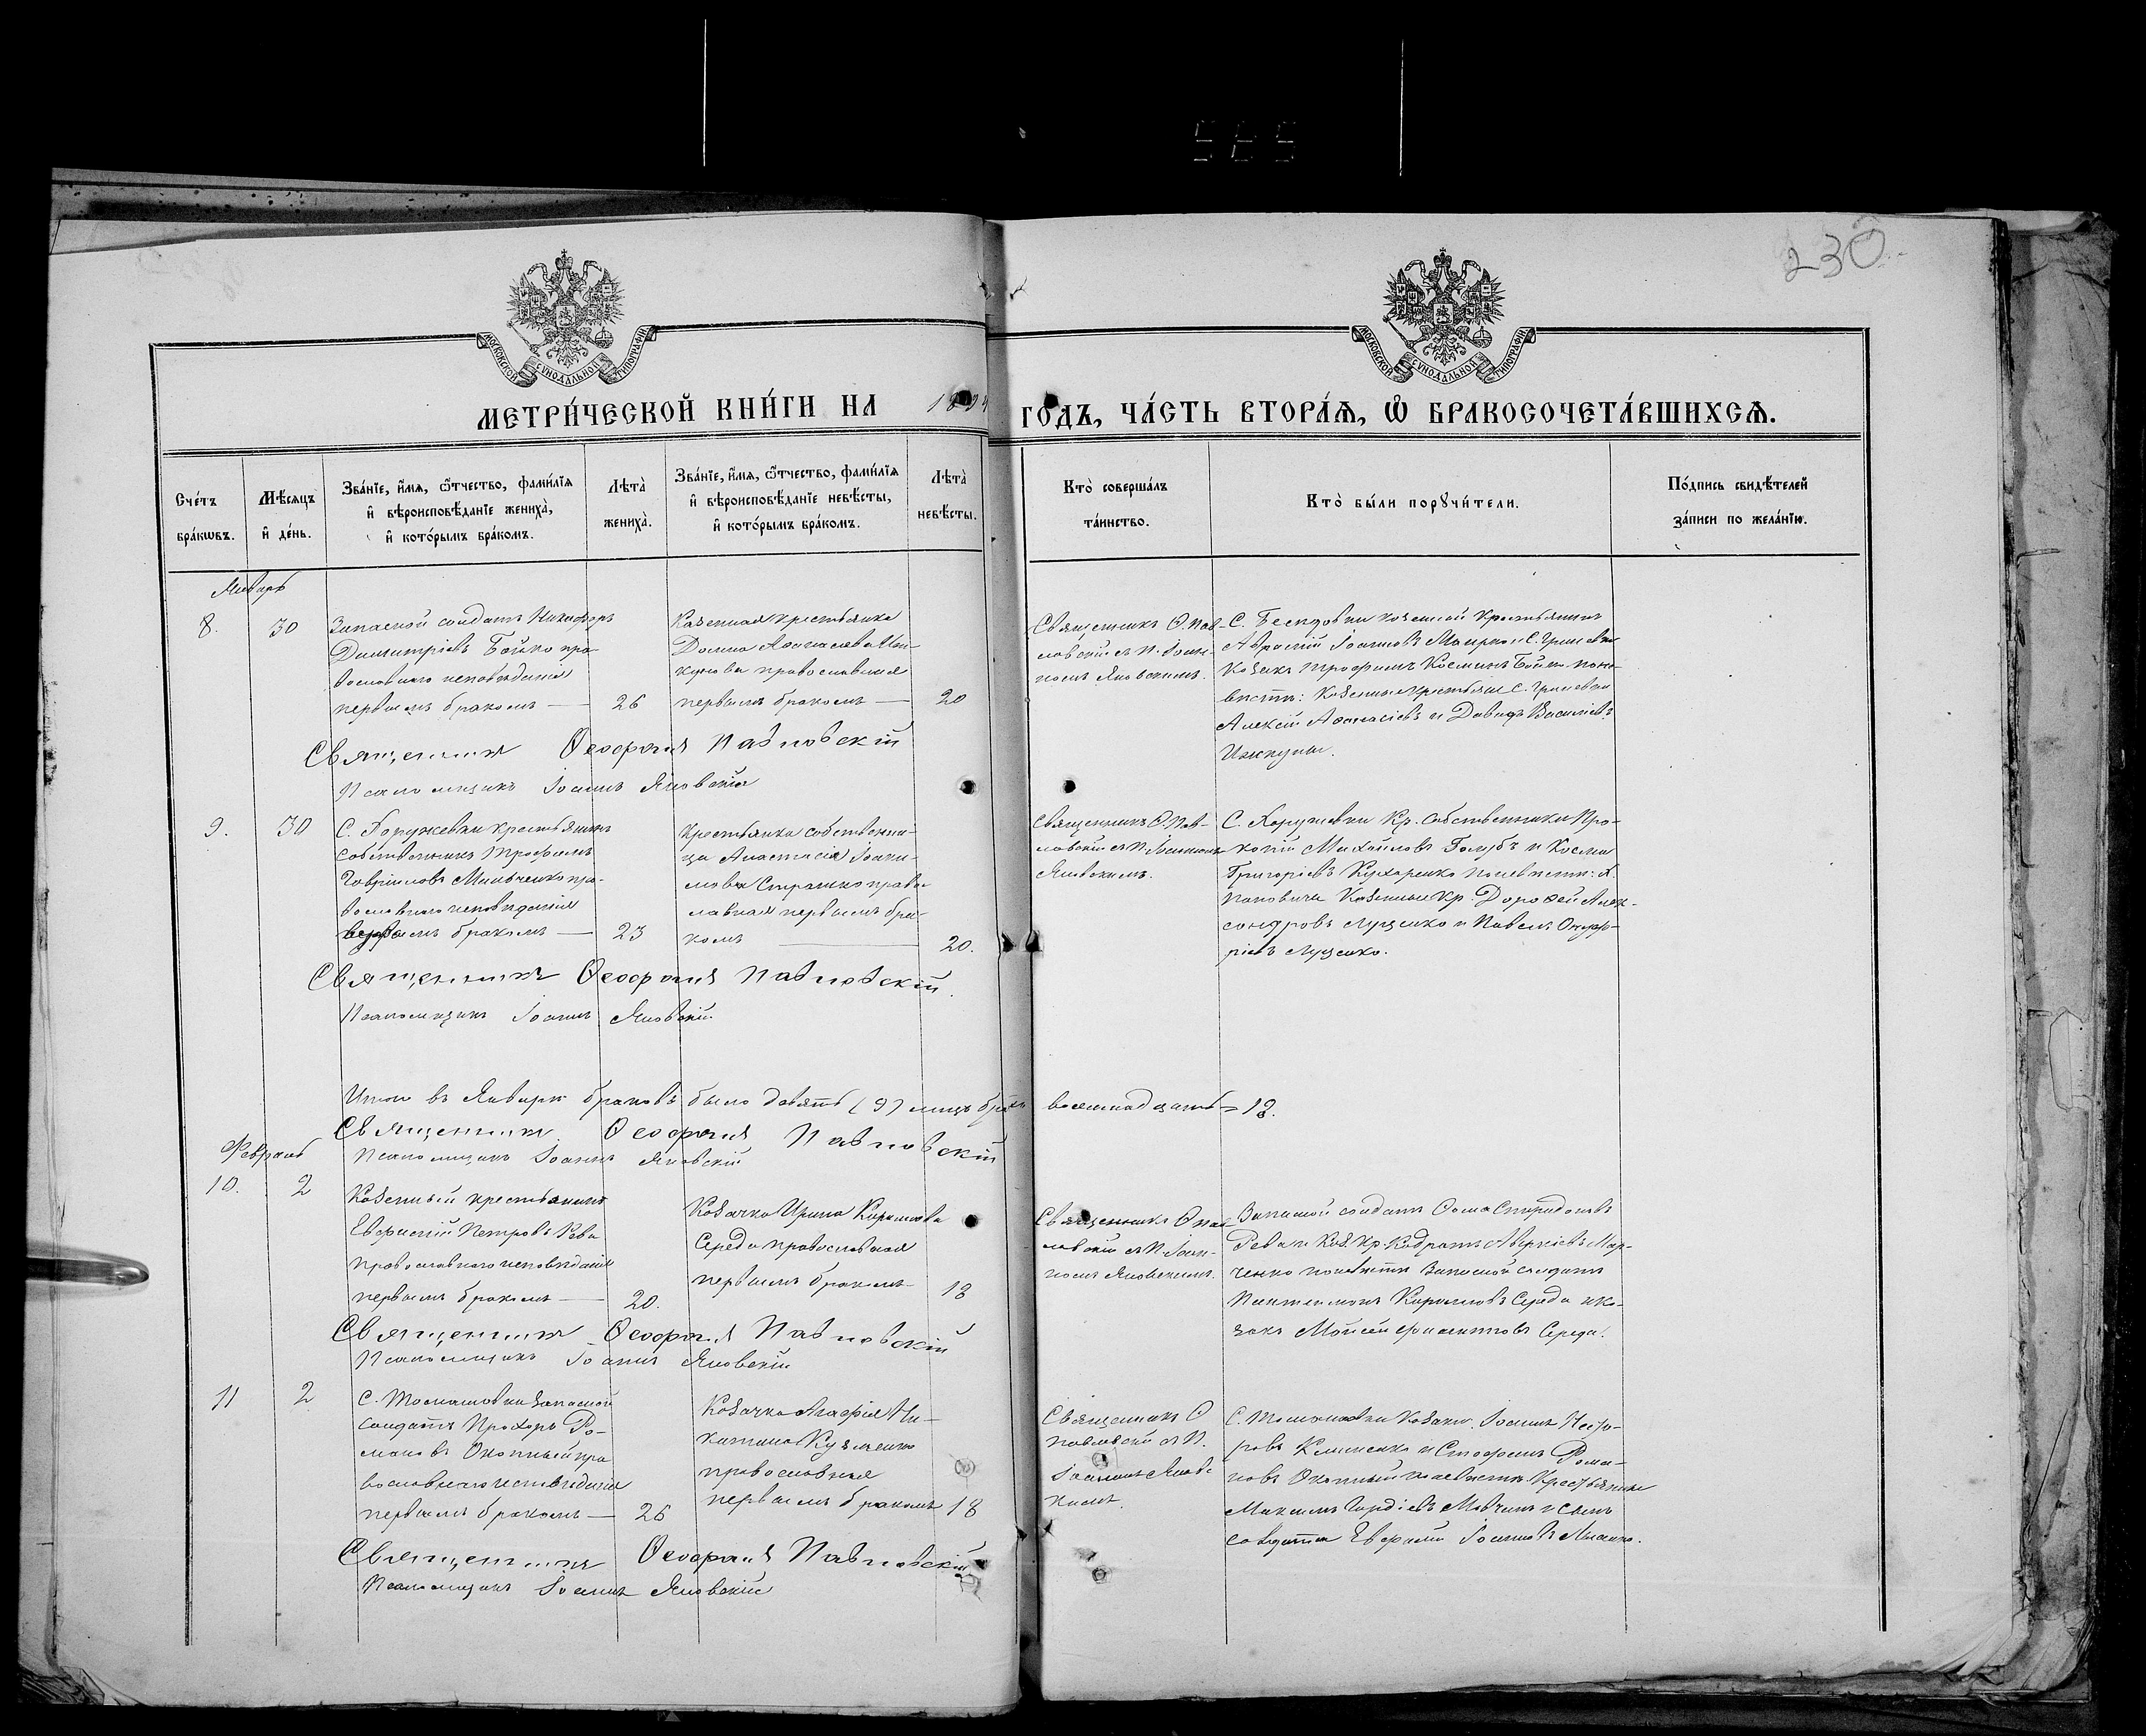 230
МОСКОВСКОЙ СѴНОДАЛЬНОЙ ТИПОГРАФІИ
МОСКОВСКОЙ СѴНОДАЛЬНОЙ ТИПОГРАФІИ
МЕТРИ́ЧЕСКОЙ КНИ́ГИ НА 189 ГОДЪ, ЧА́СТЬ ВТОРА́Ѧ, Ѽ БРАКОСОЧЕТА́ВШИХСѦ.
Сче́тъ бра́кωвъ.
Мѣ́сѧцъ и҆ де́нь.
Зва́нїе, и҆́мѧ, ѻ҆́тчество, фамі́лїѧ
и҆ вѣроисповѣ́данїе жениха̀,
и҆ кото́рымъ бра́комъ.
Лѣта̀ жениха̀.
Зва́нїе, и҆́мѧ, ѻ҆́тчество, фамі́лїѧ
и҆ вѣроисповѣ́данїе невѣ́сты,
и҆ кото́рымъ бра́комъ.
Лѣта̀ невѣ́сты.
Кто̀ соверша́лъ
та́инство.
Кто̀ бы́ли порꙋчи́тели.
По́дпись свидѣ́телей
за́писи по жела́нїю.
Январь
8.
30
Запасной солдатъ Никифоръ
Димитріевъ Бойко пра-
вославнаго исповѣданія
первымъ бракомъ —
26
Казенная крестьянка
Домна Аѳанасіева
православная
первымъ бракомъ —
20
Священникъ Ѳ. Пав-
ловскій съ П. Іоан-
номъ Яновскимъ.
С. Беседовки казенный крестьянинъ
Іоанновъ С. Гришевки
Козакъ Трофимъ Косминъ Бойко по не-
вѣстѣ: Казенные крестьяне С. Гришевки
Алексій Аѳанасіевъ и Давидъ Василіевъ
Священникъ Ѳеофанъ Павловскій
Псаломщикъ Іоаннъ Яновскій
9.
30
С. крестьянинъ
собственникъ Трофимъ
Гавріиловъ Мильченко пра-
вославнаго исповѣданія
первымъ бракомъ —
23
Крестьянка собственни-
ца Анастасія Іоанн-
ова Страшко право-
славная первымъ бра-
комъ —
20.
Священникъ Ѳ. Пав-
ловскій съ П. Іоанномъ
Яновскимъ.
С. Кр. собственники Про-
копій Михайловъ Голубъ и Косма
Григоріевъ Кухаренко по невѣстѣ:
Поповичи Казенные Кр. Дороѳей Алек-
сандровъ Луценко и Павелъ Онуф-
ріевъ Луценко.
Священникъ Ѳеофанъ Павловскій.
Псаломщикъ Іоаннъ Яновскій
Итого въ Январѣ браковъ было девять (9) лицъ
восемнадцать = 18.
Священникъ Ѳеофанъ Павловскій
Псаломщикъ Іоаннъ Яновскій
Февраль
10.
2
Казенный крестьянинъ
Евфимій Петровъ Рева
православнаго исповѣданія
первымъ бракомъ —
20.
Козачка Ирина Кириллова
Середа православная
первымъ бракомъ —
18
Священникъ Ѳ. Пав-
ловскій съ П. Іоан-
номъ Яновскимъ.
Запасной солдатъ Ѳома Спиридоновъ
Рева и Каз. Кр. Кодратъ Аверкіевъ Мар-
ченко по невѣстѣ Запасной солдатъ
Пантелимонъ Кирилловъ Середа и ко-
закъ Мойсей Филипповъ Середа.
Священникъ Ѳеофанъ Павловскій
Псаломщикъ Іоаннъ Яновскій
11
2
С. Томашовки запасной
солдатъ Прохоръ Ро-
мановъ Охотный пра-
вославнаго исповѣданія
первымъ бракомъ —
26
Козачка Агафія Ни-
китина Кузменко
православная
первымъ бракомъ
18
Священникъ Ѳ
Павловскій съ П.
Іоанномъ Яновс-
кимъ.
С. Томашовки Козаки Іоаннъ
Клименко и Стефанъ Рома-
новъ Охотный по невѣстѣ Крестьянинъ
Максимъ Гордіевъ и сынъ
солдата Евфимій Іоанновъ
Священникъ Ѳеофанъ Павловскій
Псаломщикъ Іоаннъ Яновскій